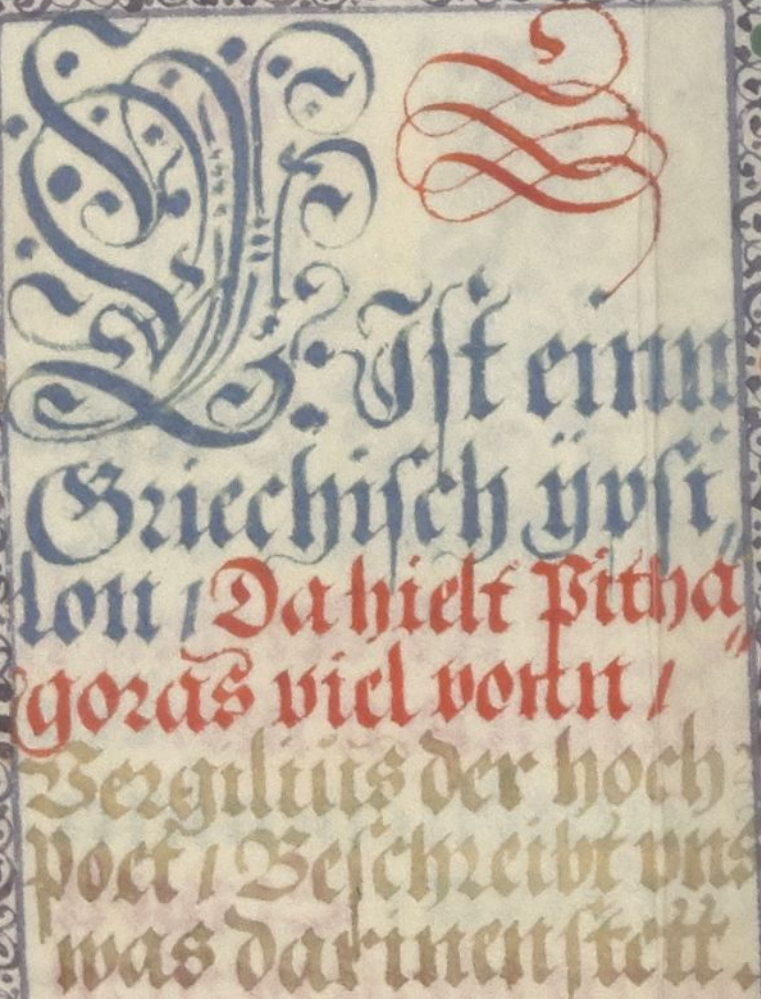 Y. Ist einn
Griechisch ÿpsi„
lon / Da hielt Pitha„
goras viel vonn /
Vergilius der hoch
poet / Beschreibt vns
was darinen stett.